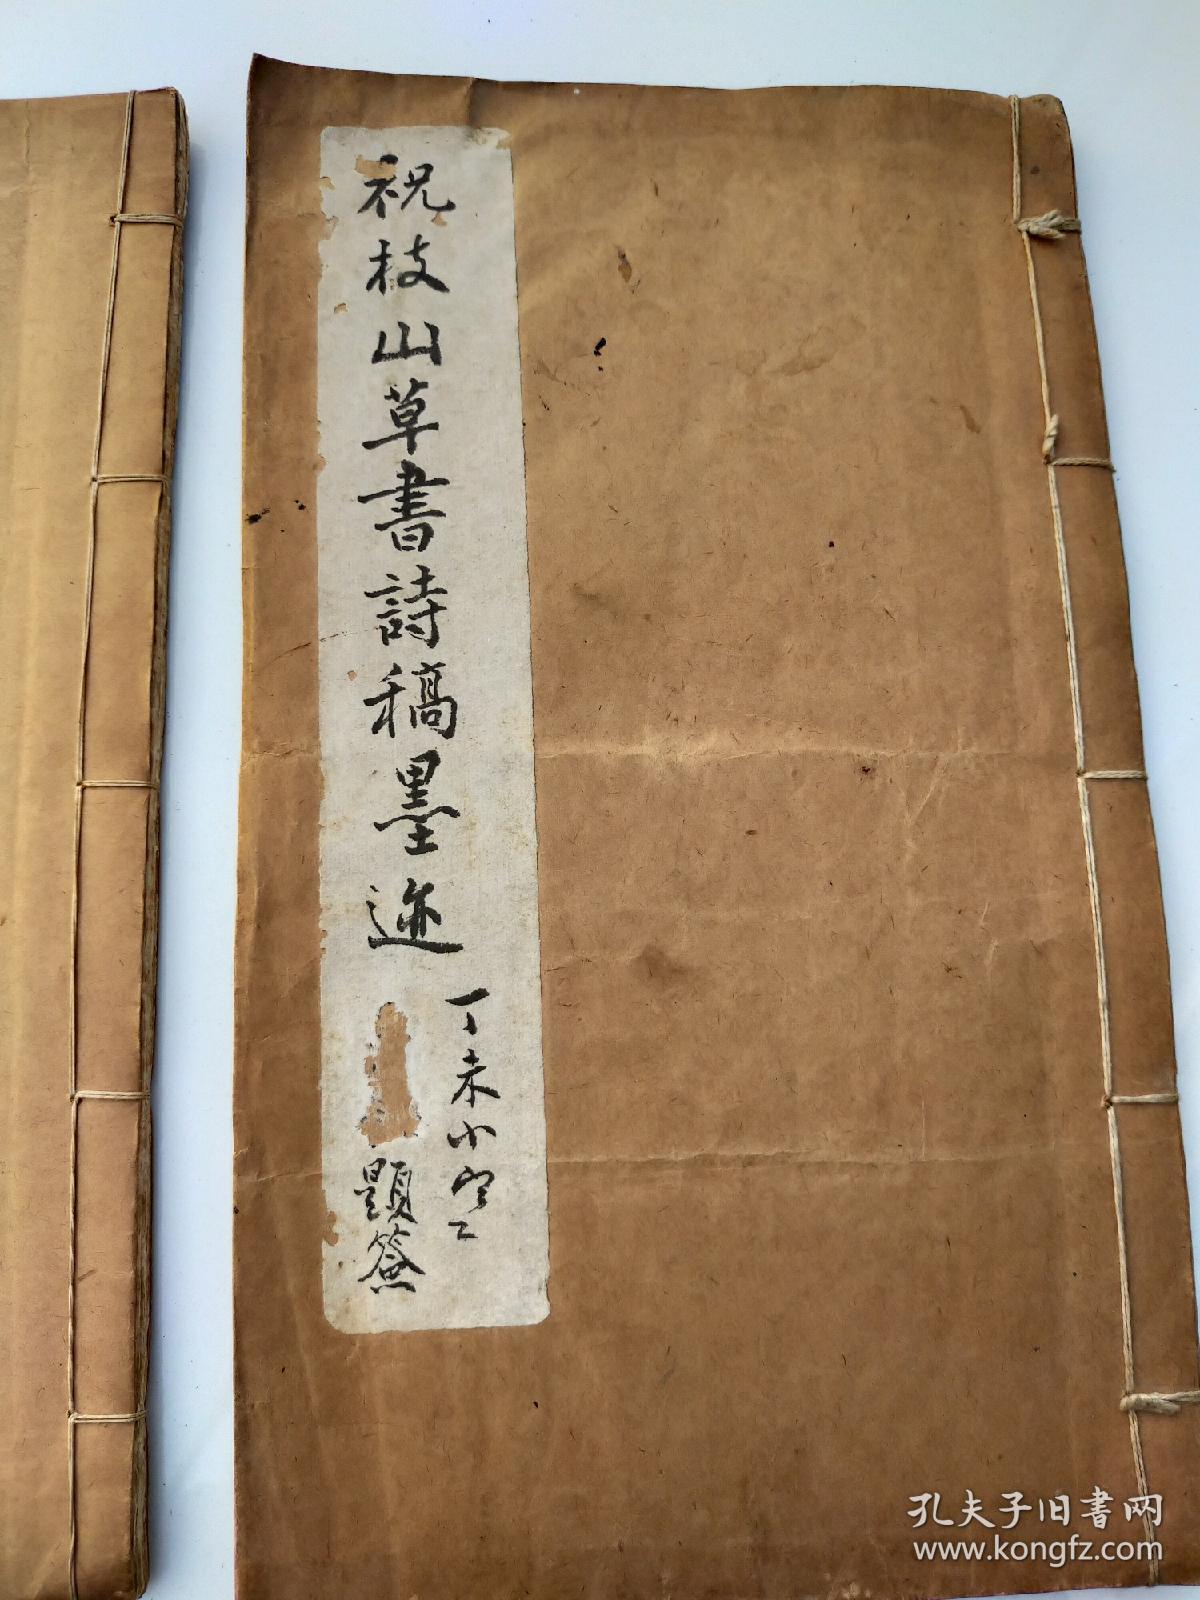 祝枝山草書詩稿墨迹
丁未小雪
題簽
孔夫子旧书网
www.kongfz.com